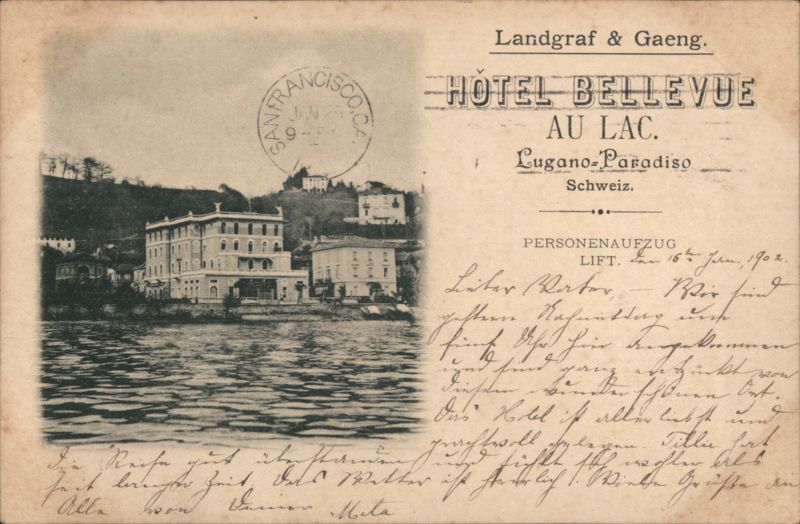 Landgraf & Gaeng.
HÔTEL BELLEVUE
AU LAC.
Lugano-Paradiso
Schweiz.
PERSONENAUFZUG
LIFT.
SAN FRANCISCO, CAL.
JAN 29
9-
den 16ten Jan., 1902.
Lieber Vater, – Wir sind
gestern Nachmittag um
fünf Uhr hier angekommen
und sind ganz entzückt von
diesem wunderschönen Ort.
Das Hotel ist allerliebst und
prachtvoll gelegen. Tillie hat
die Reise gut überstanden und fühlt sich wohler als
seit langer Zeit. Das Wetter ist herrlich. Viele Grüße an
Alle von Deiner Meta